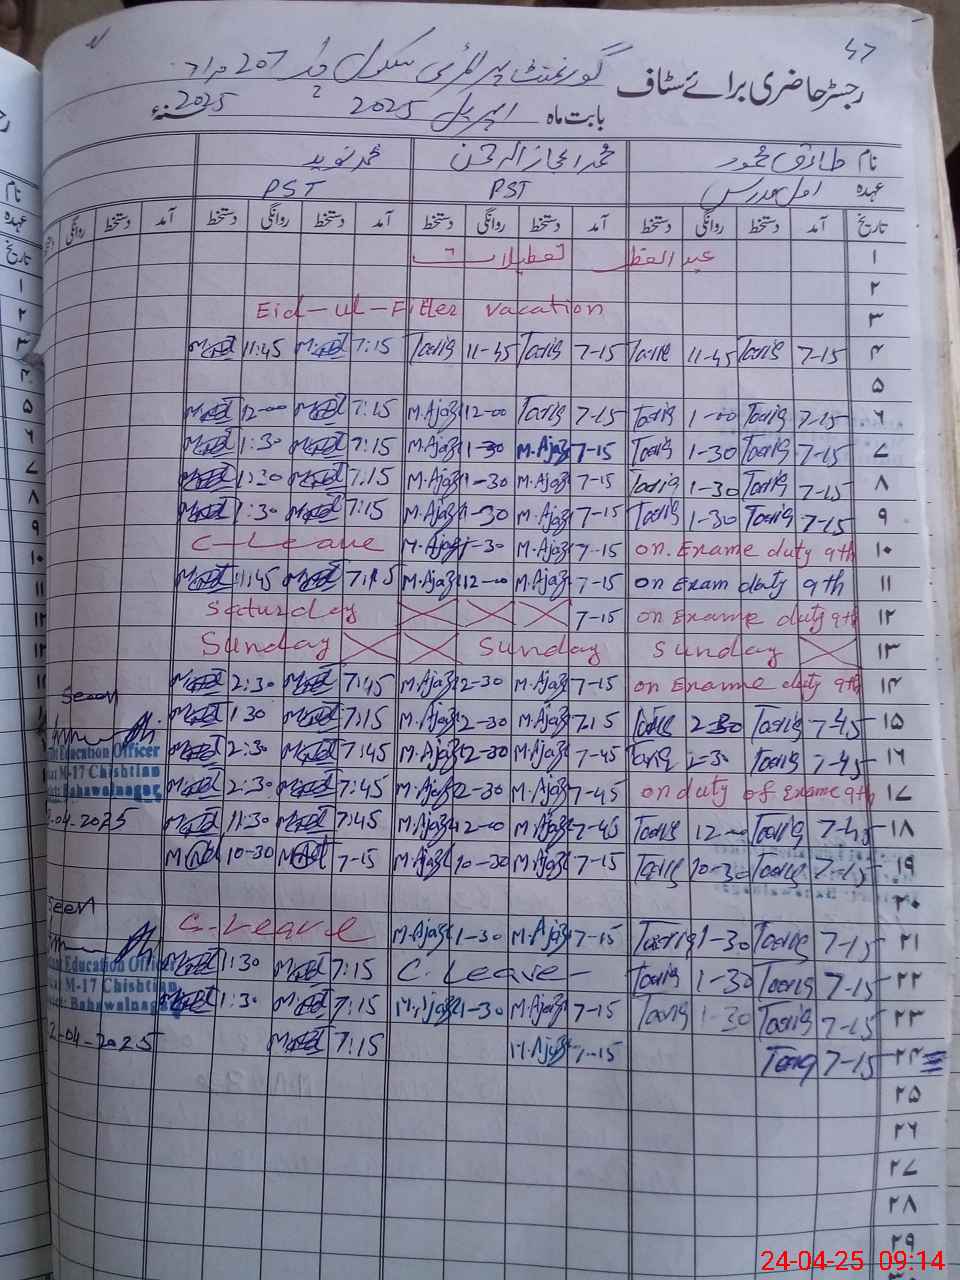 47
گورنمنٹ پرائمری سکول 207 مراد
رجسٹر حاضری برائے سٹاف
بابت ماہ اپریل 2025 2025
نام طارق محمود محمد اعجاز الرحمن محمد نوید
عہدہ اول مدرس PST PST
تاریخ آمد دستخط روانگی دستخط آمد دستخط روانگی دستخط آمد دستخط روانگی دستخط آمد دستخط روانگی
۱ عید الفطر تعطیلات
۲
۳ Eid-ul-Fitter vacation
۴ 7-15 Tariq 11-45 Tariq 7-15 Tariq 11-45 Tariq 7:15 11:45
۵
۶ 7-15 Tariq 1-00 Tariq 7-15 Tariq 12-00 M.Ajaz 7:15 12-00
۷ 7-15 Tariq 1-30 Tariq 7-15 M.Ajaz 1-30 M.Ajaz 7:15 1:30
۸ 7-15 Tariq 1-30 Tariq 7-15 M.Ajaz 1-30 M.Ajaz 7:15 1:30
۹ 7-15 Tariq 1-30 Tariq 7-15 M.Ajaz 1-30 M.Ajaz 7:15 1:30
۱۰ on. Exame duty 9th 7-15 M.Ajaz 1-30 M.Ajaz C-Leave
۱۱ on Exam duty 9th 7-15 M.Ajaz 12-00 M.Ajaz 7:15 11:45
۱۲ on Exame duty 9th 7-15 Saturday
۱۳ Sunday Sunday Sunday
۱۴ on Exame duty 9th 7-15 M.Ajaz 2-30 M.Ajaz 7:45 2:30
Seen
۱۵ 7-45 Tariq 2-30 Tariq 7:15 M.Ajaz 2-30 M.Ajaz 7:15 1:30
۱۶ 7-45 Tariq 2-30 Tariq 7-45 M.Ajaz 2-30 M.Ajaz 7:45 2:30
Education Officer
M-17 Chishtian
Bahawalnagar
۱۷ on duty of Exame 9th 7-45 M.Ajaz 2-30 M.Ajaz 7:45 2:30
۱۸ 7-45 Tariq 12-00 Tariq 7-45 M.Ajaz 12-00 M.Ajaz 7:45 11:30
.04.2025
۱۹ 7-15 Tariq 10-30 Tariq 7-15 M.Ajaz 10-30 M.Ajaz 7-15 10-30
۲۰
Seen
۲۱ 7-15 Tariq 1-30 Tariq 7-15 M.Ajaz 1-30 M.Ajaz C-Leave
۲۲ 7-15 Tariq 1-30 Tariq C. Leave - 7:15 1:30
Education Officer
M-17 Chishtian
Bahawalnagar
۲۳ 7-15 Tariq 1-30 Tariq 7-15 M.Ajaz 1-30 M.Ajaz 7:15 1:30
۲۴ 7-15 Tariq 7-15 M.Ajaz 7:15
2-04-2025
۲۵
۲۶
۲۷
۲۸
۲۹
24-04-25 09:14